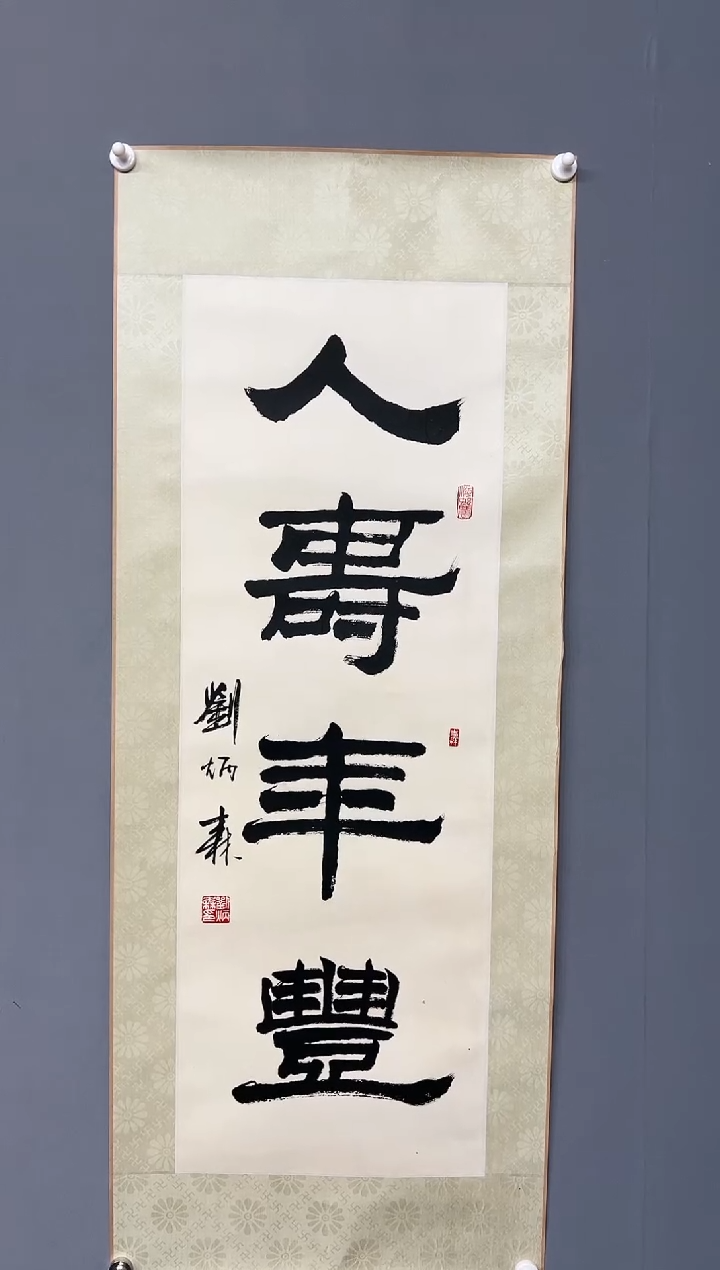 人壽年豐
劉炳森